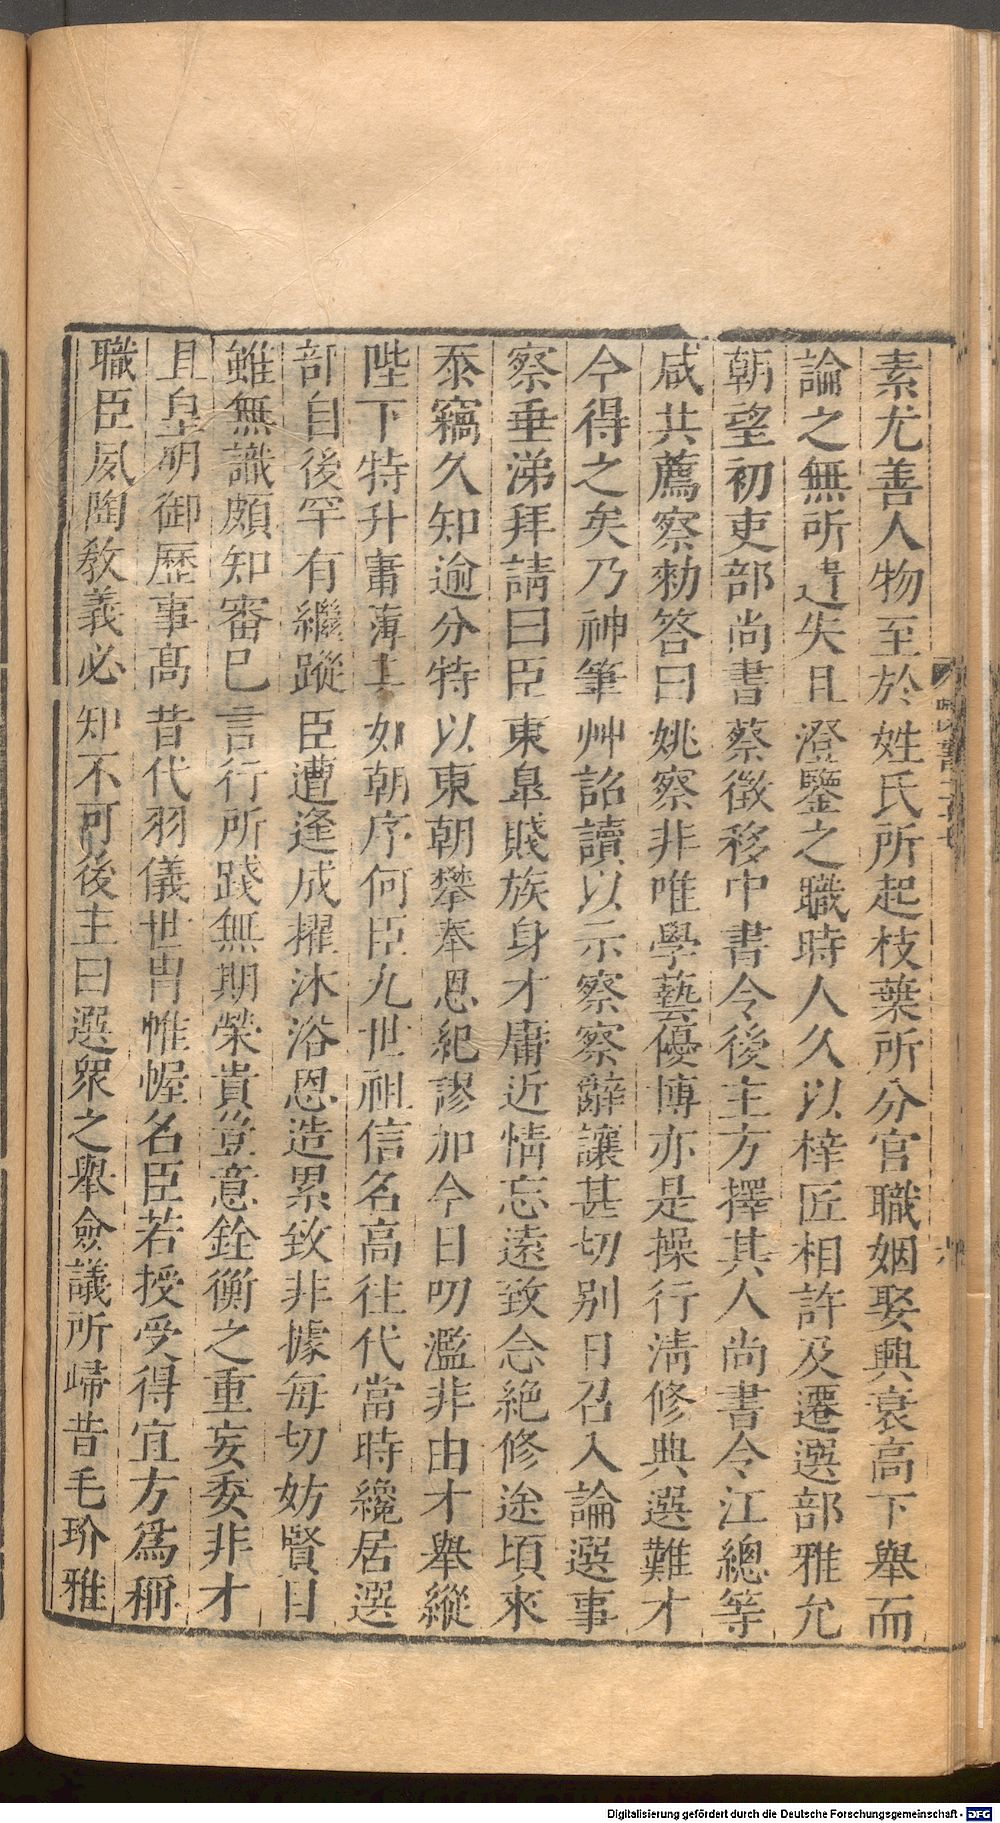 素尤善人物至於姓氏所起枝葉所分官職姻娶興衰高下舉而
論之無所遺失且澄鑒之職時人久以梓匠相許及遷選部雅允
朝望初吏部尚書蔡徵移中書令後主方擇其人尚書令江總等
咸共薦察勑答曰姚察非唯學藝優博亦是操行清修典選難才
今得之矣乃神筆艸詔讀以示察察辭讓甚切别日召入論選事
察垂涕拜請曰臣東臯賤族身才庸近情忘遠致念絶修途頃來
忝竊久知逾分特以東朝攀奉恩紀謬加今日叨濫非由才舉縱
陛下特升庸薄其如朝序何臣九世祖信名高往代當時纔居選
部自後罕有繼蹤臣遭逢成擢沐浴恩造累致非據每切妨賢且
雖無識頗知審已言行所踐無期榮貴豈意銓衡之重妄委非才
且皇明御歷事髙昔代羽儀世胄帷幄名臣若授受得宜方爲稱
職臣夙陶敎義必知不可後主曰選衆之舉僉議所歸昔毛玠雅
Digitalisierung gefördert durch die Deutsche Forschungsgemeinschaft - DFG